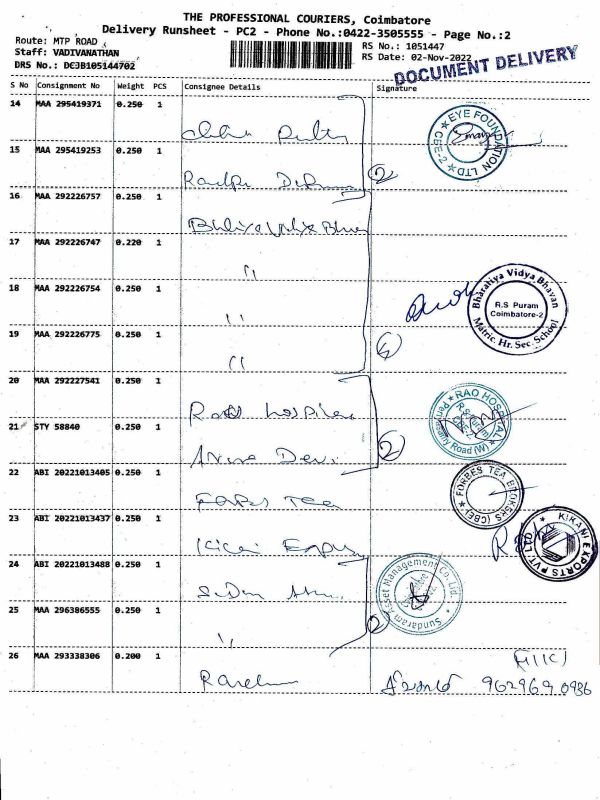 THE PROFESSIONAL COURIERS, Coimbatore
Delivery Runsheet - PC2 - Phone No.:0422-3505555 - Page No.:2
Route: MTP ROAD
Staff: VADIVANATHAN
DRS No.: DCJB105144702
RS No.: 1051447
RS Date: 02-Nov-2022
DOCUMENT DELIVERY
S No Consignment No Weight PCS Consignee Details Signature
14 MAA 295419371 0.250 1
EYE FOUNDATION LTD CBE-2
15 MAA 295419253 0.250 1
2
16 MAA 292226757 0.250 1
17 MAA 292226747 0.220 1 "
18 MAA 292226754 0.250 1 "
Bharatiya Vidya Bhavan
R.S Puram
Coimbatore-2
Matric. Hr. Sec. School
19 MAA 292226775 0.250 1 "
20 MAA 292227541 0.250 1 Rao Hospital
RAO HOSPITAL
R.S.Puram
CBE-2
Periasamy Road (W)
21 STY 58840 0.250 1 Devi
2
22 ABI 20221013405 0.250 1 Forbes Tea
FORBES TEA BROKERS (CBE)
23 ABI 20221013437 0.250 1
KIKANI EXPORTS PVT LTD
24 ABI 20221013488 0.250 1
Sundaram Asset Management Co. Ltd.
Coimbatore
25 MAA 296386555 0.250 1 "
26 MAA 293338306 0.200 1
962969 0936